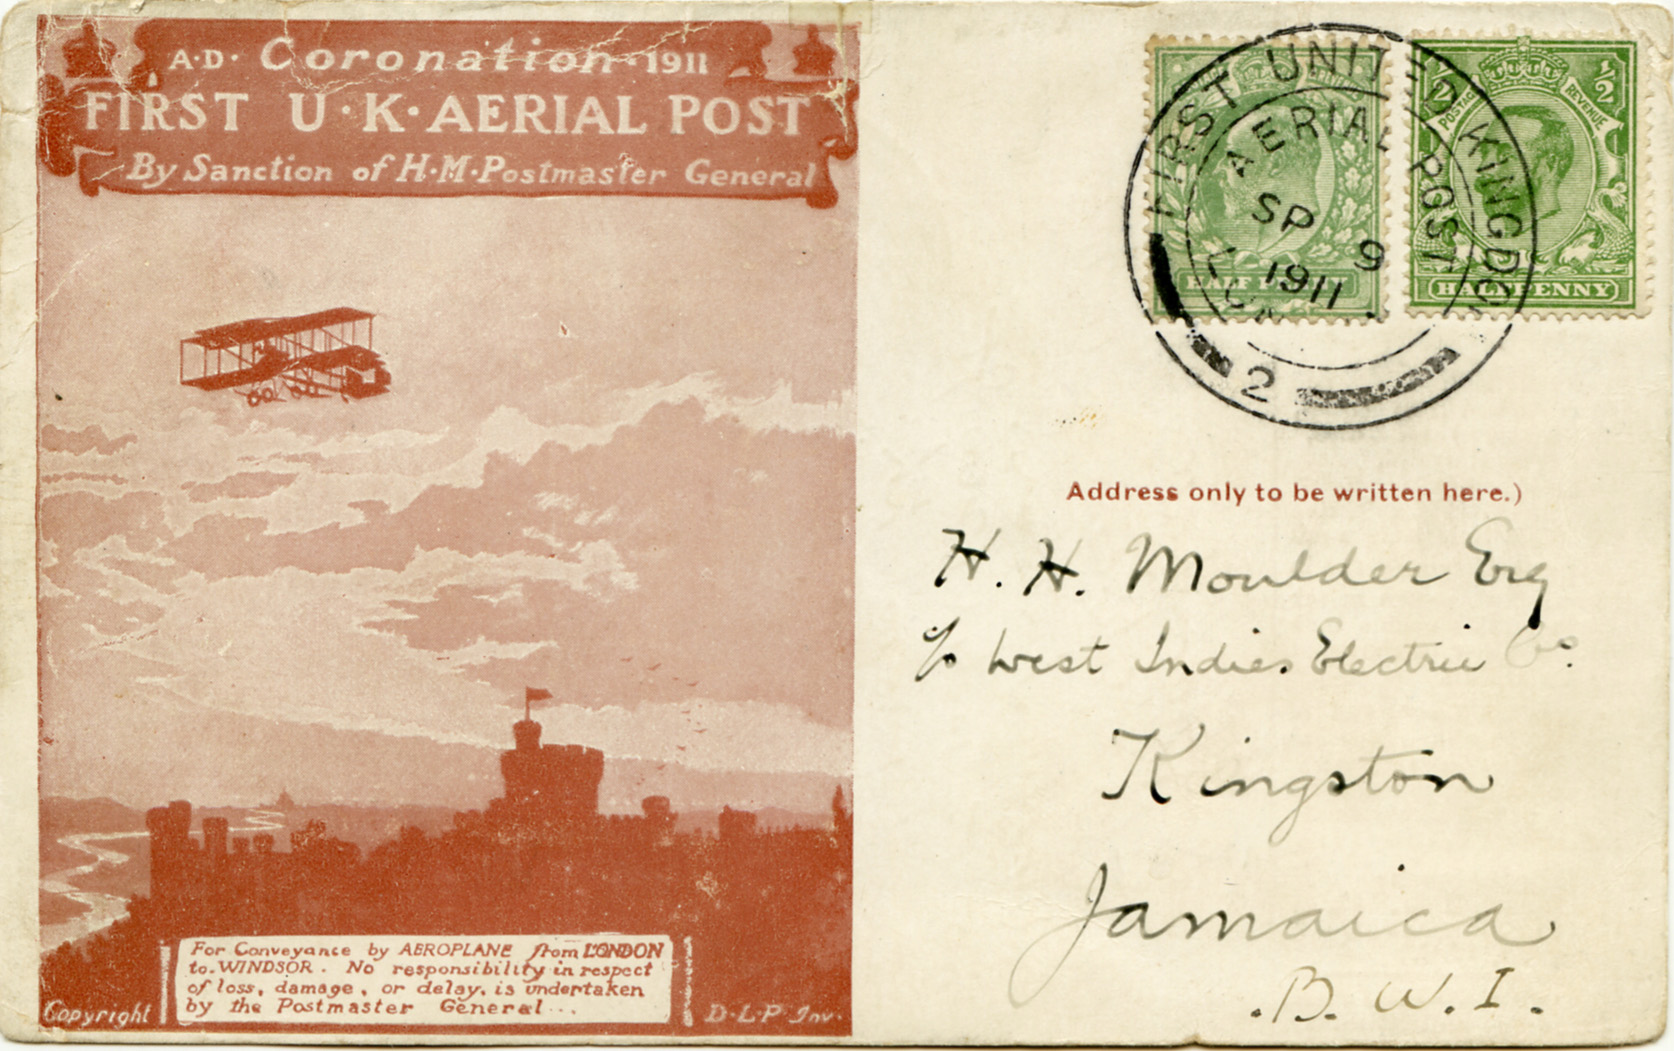 A·D· Coronation·1911
FIRST U·K·AERIAL POST
By Sanction of H·M·Postmaster General
For Conveyance by AEROPLANE from LONDON
to WINDSOR. No responsibility in respect
of loss, damage, or delay, is undertaken
by the Postmaster General...
Copyright
D·L·P·Inv.
FIRST UNITED KINGDOM
AERIAL POST
SP 9
1911
2
HALF PENNY
1/2
1/2
POSTAGE
REVENUE
HALFPENNY
Address only to be written here.)
H. H. Moulder Esq
c/o West Indies Electric Co.
Kingston
Jamaica
.B. W. I.